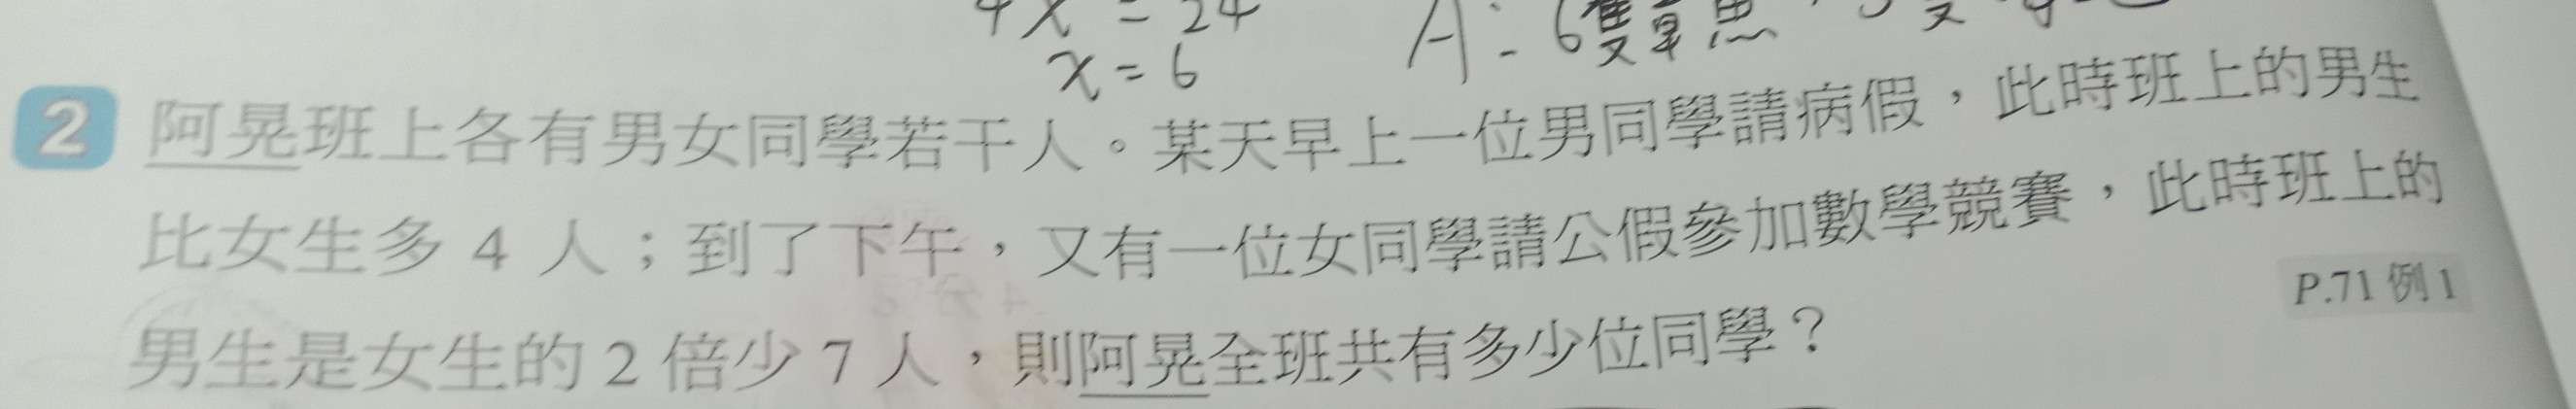 4x = 24
x = 6
A: 6隻章魚,
2 阿晃班上各有男女同學若干人。某天早上一位男同學請病假,此時班上的男生
比女生多 4 人;到了下午,又有一位女同學請公假參加數學競賽,此時班上的
男生是女生的 2 倍少 7 人,則阿晃全班共有多少位同學?
P.71 例 1